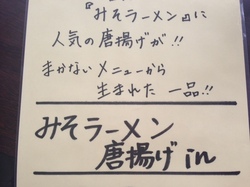 『みそラーメン』に
人気の唐揚げが!!
まかないメニューから
生まれた 一品!!
みそラーメン
唐揚げ in